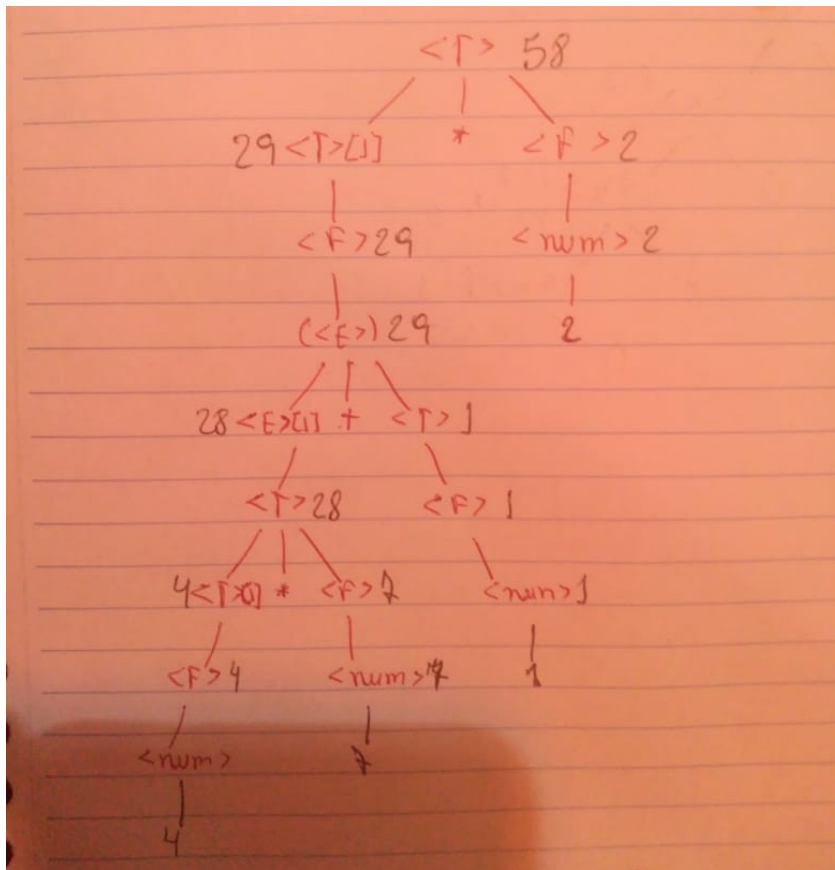 <T> 58
29 <T>[1] * <F> 2
<F> 29 <num> 2
(<E>) 29 2
28 <E>[1] + <T> 1
<T> 28 <F> 1
4 <T>[1] * <F> 7 <num> 1
<F> 4 <num> 7 1
<num> 7
4